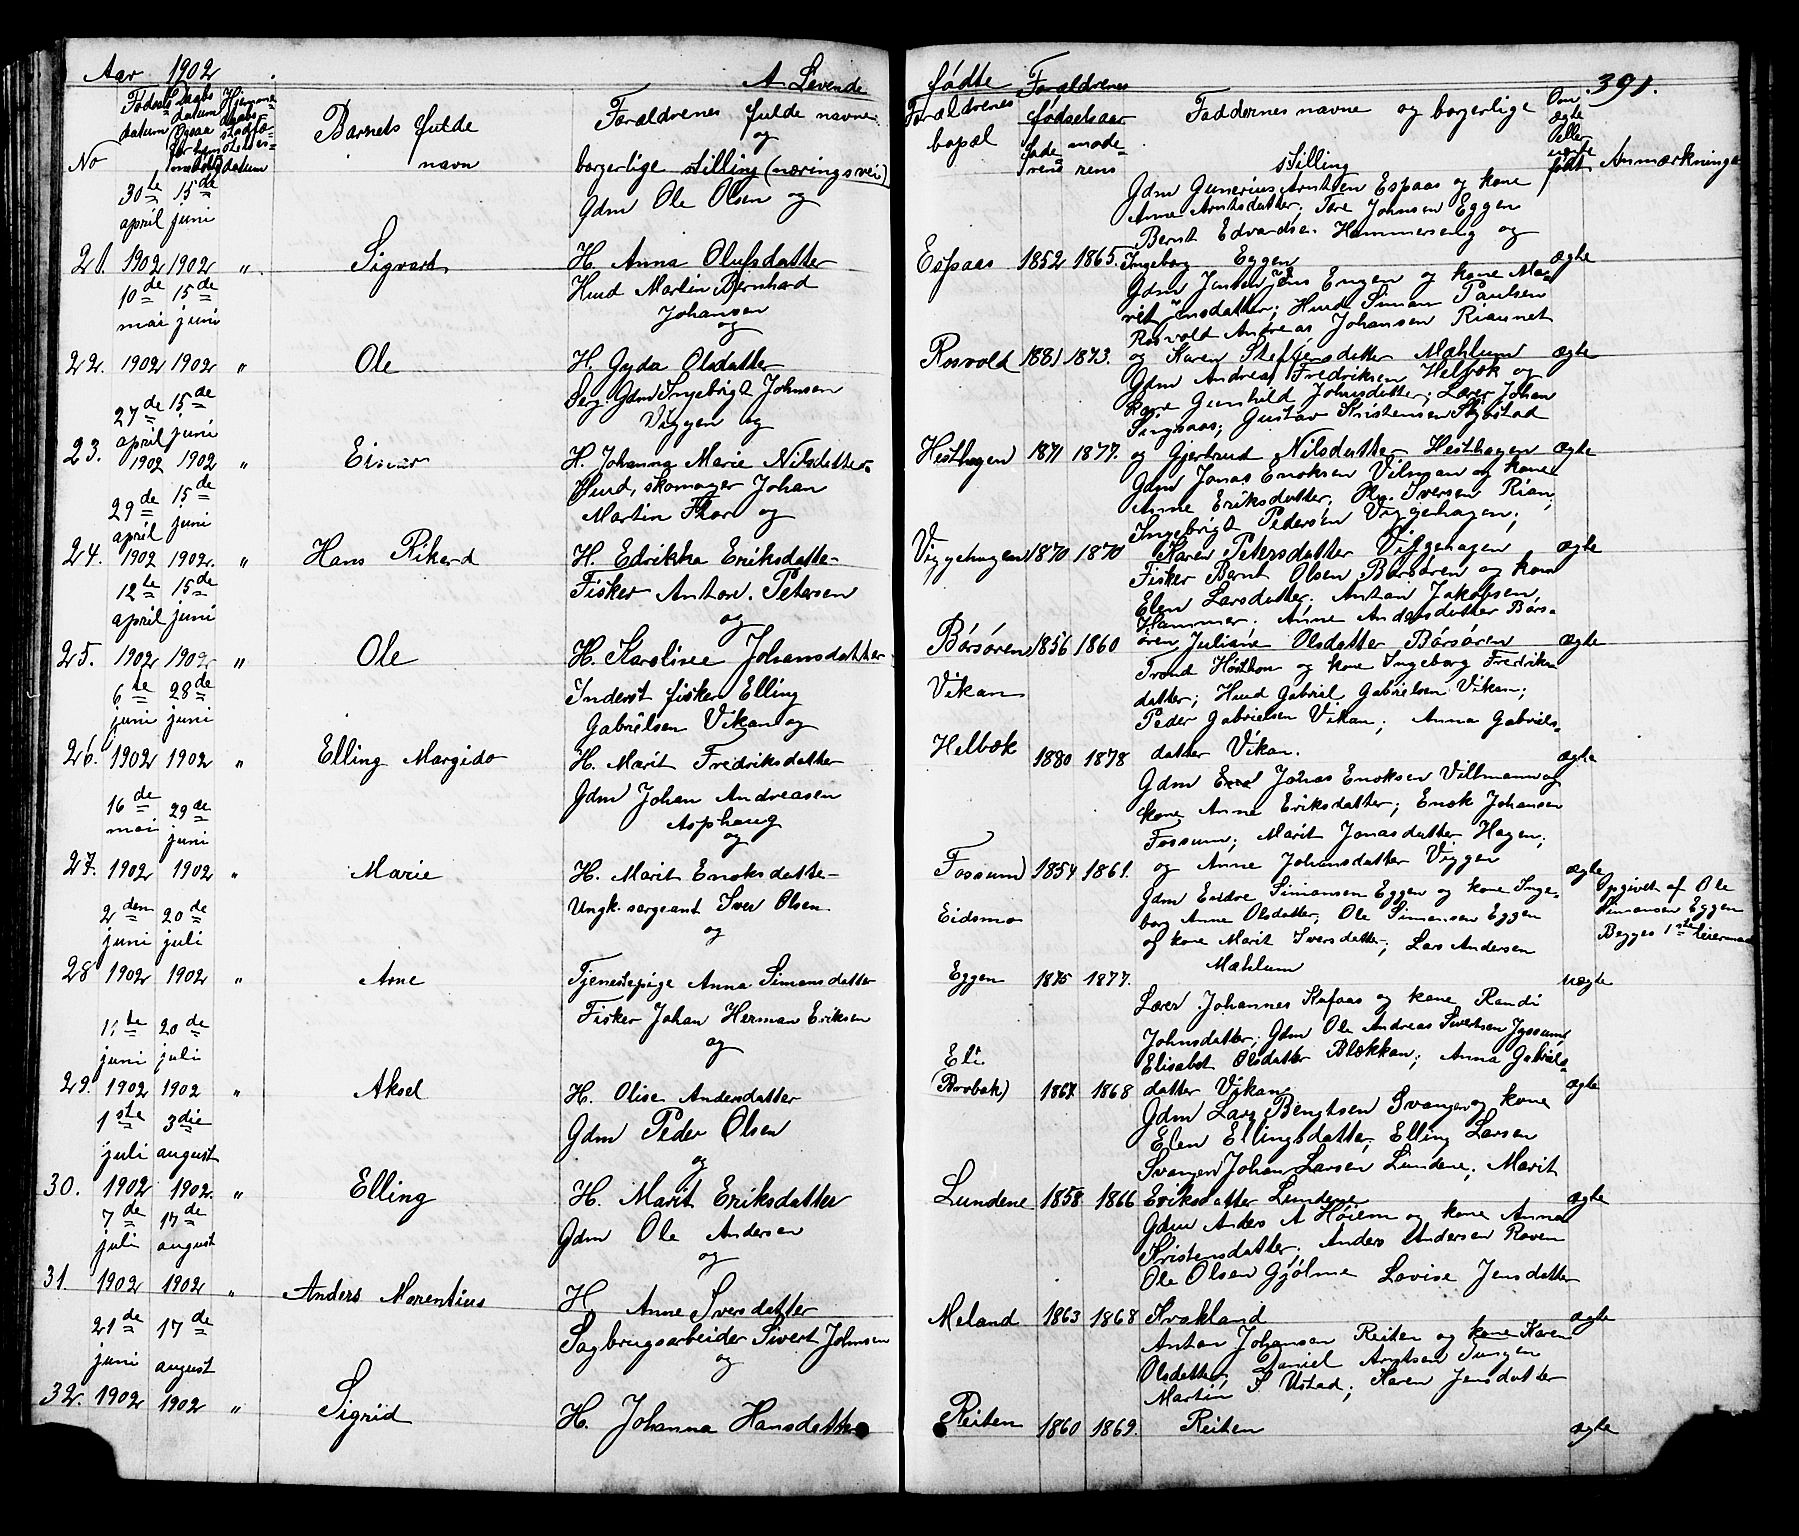 Aar 1902. A Levende fødte 391.
No
Fødsels datum
Daabs datum
Barnets fulde navn
Forældrenes fulde navne og borgerlige stilling (næringsvei)
Forældrenes bopæl
Forældrenes fødselsaar
fade- rens
mode- rens
Faddernes navne og borgerlige stilling
Om ægte eller uægte født
Anmærkninger
30te 15de
april juni
21. 1902 1902 "
Sigvart
Gdm Ole Olsen og
H. Anna Olufsdatter
Espaas 1852 1865.
Gdm Gunerius Arntsen Espaas og kone
Anne Arntsdatter; Tore Johnsen Eggen
Bernt Edvardsen Hammerseng og
Ingeborg Eggen
ægte
10de 15de
mai juni
22. 1902 1902 "
Ole
Husd Martin Bernhard
Johansen
og
H. Gyda Olsdatter
Rosvold 1881 1873.
Gdm Jens Engen og kone Ma-
rit Jensdatter; Husd Simon Paulsen
Rosvold Andreas Johansen Riaunet
og Karen Steffensdatter Mæhlum
ægte
27de 15de
april juni
23. 1902 1902 "
Einar
Serg. Gdm Ingebrigt Johnsen
Viggen og
H. Johanna Marie Nilsdatter
Hesthagen 1871 1877.
Gdm Andreas Fredriksen Helbæk og
kone Gunhild Johnsdatter; Lærer Johan
Singsaas; Gustav Kristensen Skjøstad
og Gjertrud Nilsdatter Hesthagen
ægte
29de 15de
april juni
24. 1902 1902. "
Hans Rikard
Husd, skomager Johan
Martin Flor og
H. Edrikka Eriksdatter
Viggehagen 1870 1870
Gdm Jonas Enoksen Vilman og kone
Anne Eriksdatter; Iversen Rian;
Ingebrigt Pedersen Viggehagen;
Karen Petersdatter Viggehagen
ægte
12te 15de
april juni
25. 1902 1902 "
Ole
Fisker Anton Petersen
og
H. Karoline Johansdatter
Børsøren 1856 1860
Fisker Bernt Olsen Børsøren og kone
Elen Larsdatter; Anton Jakobsen
Hammer; Anne Andersdatter Børs-
øren Juliane Olsdatter Børsøren
ægte
6te 28de
juni juni
26. 1902 1902 "
Elling Margido
Inderst fisker Elling
Gabrielsen Vikan og
H. Marit Fredriksdatter
Vikan
Helbæk
1880 1878
Trond Høston og kone Ingeborg Fredriks
datter; Husd Gabriel Gabrielsen Vikan;
Peder Gabrielsen Vikan; Anna Gabriels-
datter Vikan.
ægte
16de 29de
mai juni
27. 1902 1902 "
Marie
Gdm Johan Andreasen
Asphaug
og
H. Marit Enoksdatter
Fossum 1854 1861.
Gdm Jonas Enoksen Villmann og
kone Anne Eriksdatter; Enok Johansen
Fossum; Marit Jonasdatter Hagen;
og Anne Johansdatter Viggen
ægte
2den 20de
juni juli
28 1902 1902 "
Arne
Ungk. sergeant Iver Olsen
og
Tjenestepige Anna Simonsdatter
Eidsmo
Eggen 1875 1877.
Gdm Endre Simonsen Eggen og kone Inge-
borg Anne Olsdatter; Ole Simonsen Eggen
og kone Marit Iversdatter; Lars Andersen
Mæhlum
uægte
Opgivet af Ole
Simonsen Eggen
Begges 1ste leiermaal
11te 20de
juni juli
29. 1902 1902 "
Aksel
Fisker Johan Herman Eriksen
og
H. Olise Andersdatter
Eli
(Brobak) 1867 1868
Lærer Johannes Kufaas og kone Randi
Johnsdatter; Gdm Ole Andreas Sivertsen Jyssum;
Elisabet Olsdatter Blækkan; Anna Gabriels-
datter Vikan
ægte
1ste 3die
juli august
30. 1902 1902. "
Elling
Gdm Peder Olsen
og
H. Marit Eriksdatter
Lundene 1858 1866
Gdm Lars Bengtsen Svangen og kone
Elen Ellingsdatter; Elling Larsen
Svangen Johan Larsen Lundene; Marit
Eriksdatter Lundene
ægte
7de 17de
juli august
31. 1902 1902 "
Anders Morentius
Gdm Ole Andersen
og
H. Anne Iversdatter
Meland 1863 1868
Gdm Anders A Høiem og kone Anna
Kristensdatter; Anders Andersen Roven
Ole Olsen Gjølme Lovise Jensdatter
Krokland
ægte
21de 17de
juni august
32. 1902 1902 "
Sigrid
Sagbrugsarbeider Sivert Johnsen
og
H. Johanna Hansdatter
Reiten 1860 1869.
Anton Johansen Reiten og kone Karen
Olsdatter; Daniel Arntsen
Martin S Ustad; Karen Jensdatter
Reiten
ægte